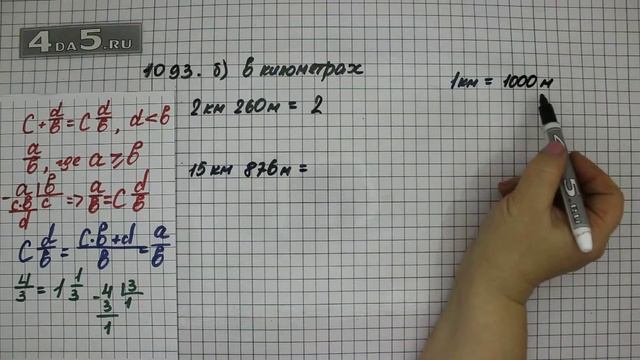 4DA5.RU
1093. б) в километрах
1км = 1000м
2км 260м = 2
15км 876м =
c + d/b = c d/b, d < b
a/b, где a ⩾ b
- a | b
c·b | c => a/b = c d/b
d
c d/b = (c·b+d)/b = a/b
4/3 = 1 1/3
- 4 | 3
3 | 1
1
5.RU